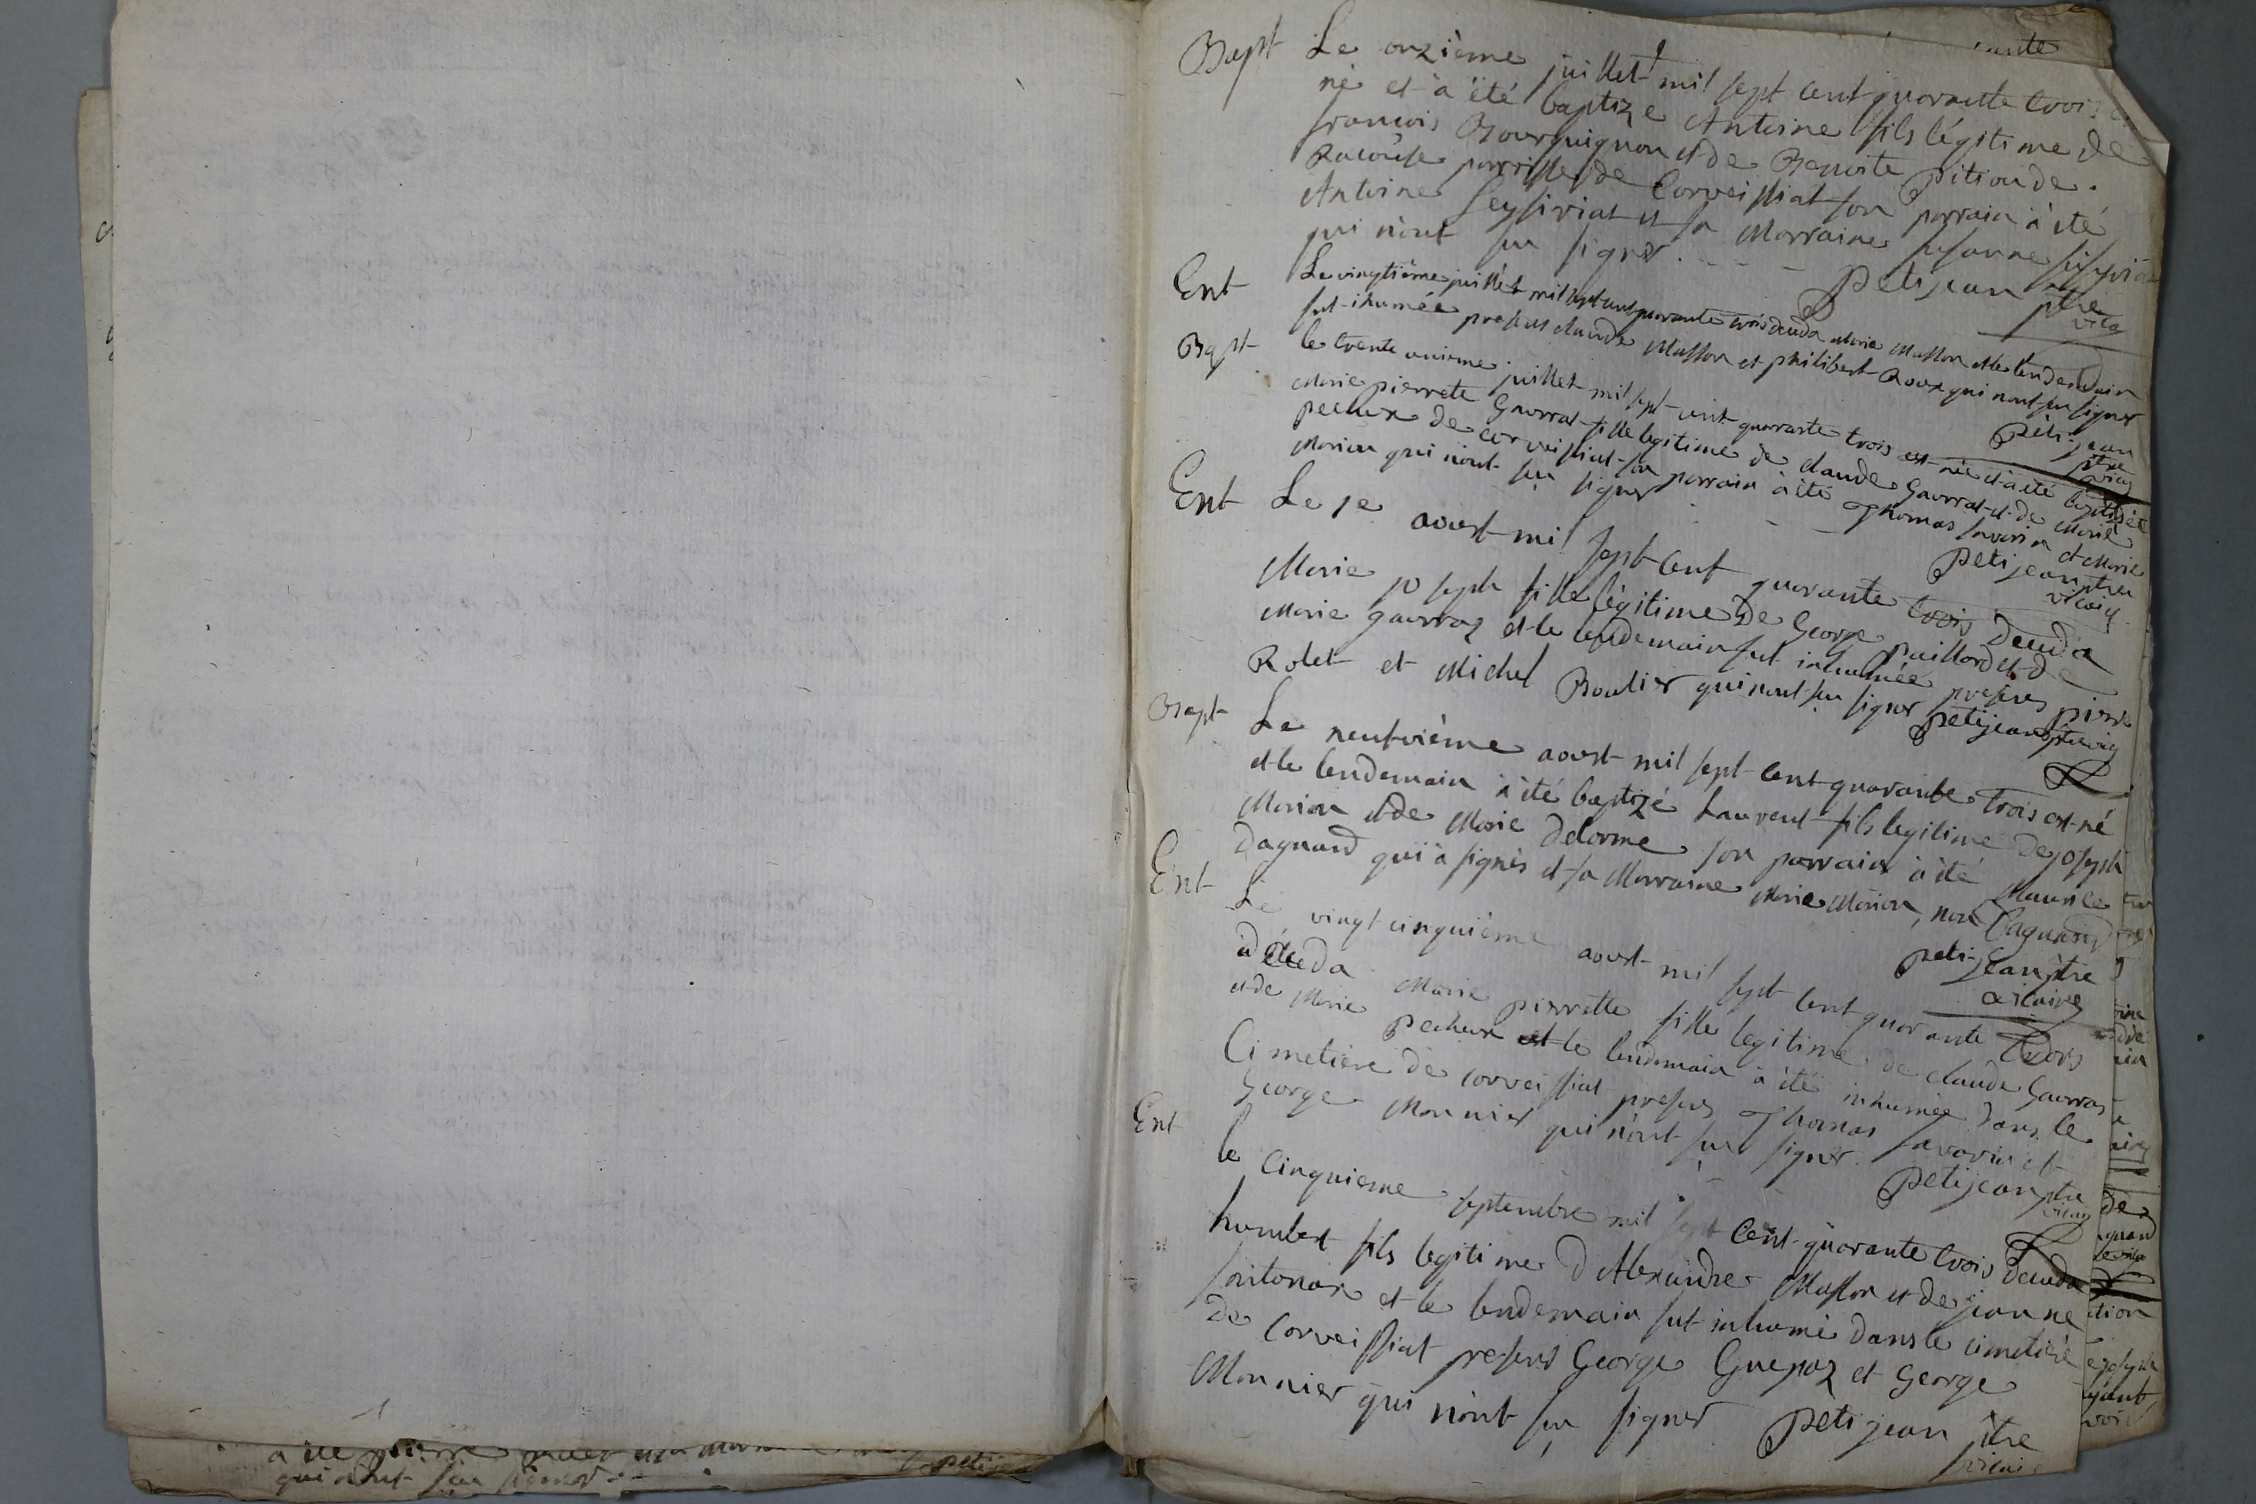 Bapt Le onzième juillet mil sept cent quarante trois est
né et à été baptize Antoine fils légitime de
françois Bourguignon et de Benoite pition de
Racouse parroisse de Corveissiat son parrain à été
Antoine Seysiriat et sa Marraine susanne
qui n'ont su signer. Petijean ptre
vicq
Ent Le vingtième juillet mil sept cent quarante trois deceda Marie Masson et le lendemain
fut ihumée presens claude Masson et philibert Roux qui nont su signer
petijean
ptre
vicq
Bapt le trente unieme juillet mil sept cent quarante trois est née et a été baptisée
Marie pierrete Gavrrat fille legitime de claude Gavrrat et de Marie
pecheux de corveissiat son parrain à été Thomas savarin et Marie
Morion qui n'ont su signer Petijean ptre
vicaiq
Ent Le 1e aoust mil sept cent quarante trois deceda
Marie joseph fille légitime de George paillard et de
Marie gavrraz et le lendemain fut inhumée presens pierre
Rolet et Michel Boulier qui nont su signer petijean ptre vicq
Bapt Le neufvième aoust mil sept cent quarante trois est né
et le lendemain à été baptizé Laurent fils legitime de joseph
Morion et de Marie Delorme son parrain à été Maurice
Dagnand qui à signés et sa Marraine Marie Morion, non Dagnand
petijean ptre
vicaire
Ent Le vingt cinquième aoust mil sept cent quarante trois
deceda Marie pierrette fille legitime de claude Gavrras
et de Marie pecheux et le lendemain à été inhumée dans le
Cimetière de corveissiat presens Thomas savarin et
George Monnier qui n'ont su signer.
Petijean ptre
vicaiq
Ent le Cinquieme septembre mil sept Cent quarante trois deceda
humbert fils legitime d'Alexandre Masson et de jeanne
fontonax et le lendemain fut inhumé dans le cimetière
De Corveissiat presens George Guepaz et George
Monnier qui n'ont su signer Petijean ptre
vicaire
qui nont su signer